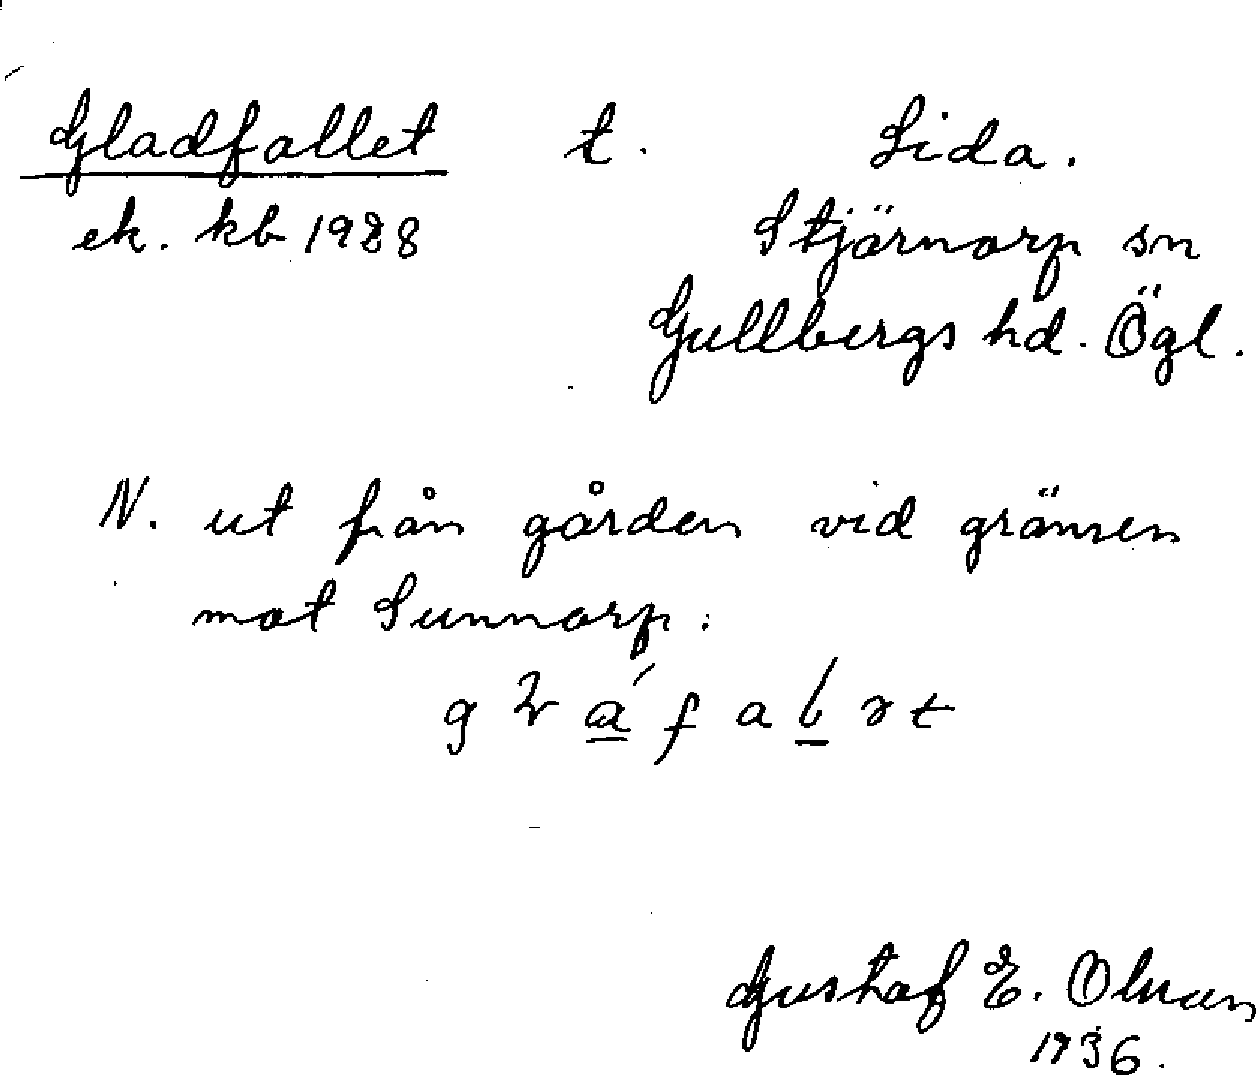 Gladfallet t. Sida.
ek. kb 1928 Stjärnorp sn
Gullbergs hd. Ögl.
N. ut från gården vid gränsen
mot Sunnorp.
Gustaf E. Olsson
1936.